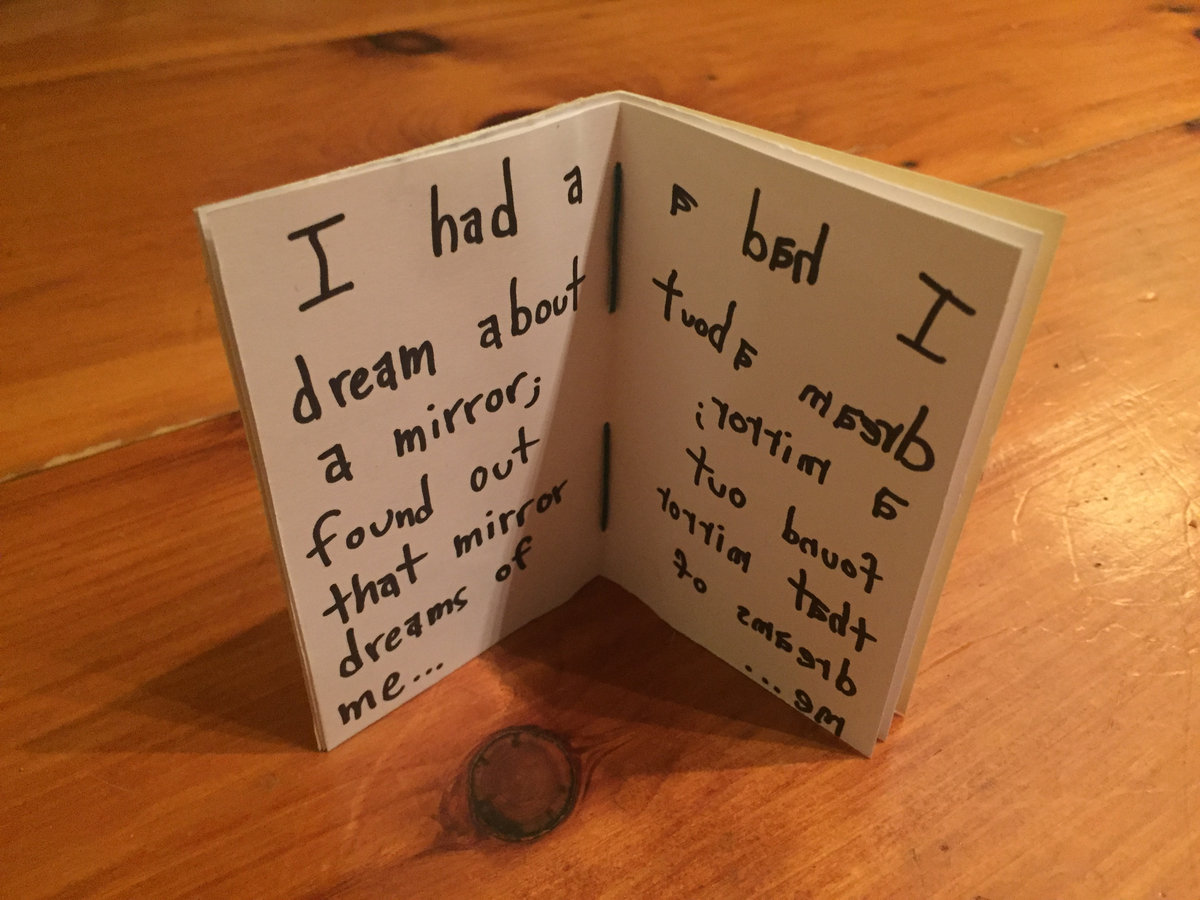 I had a
dream about
a mirror;
found out
that mirror
dreams of
me...
I had a
dream about
a mirror;
found out
that mirror
dreams of
me...